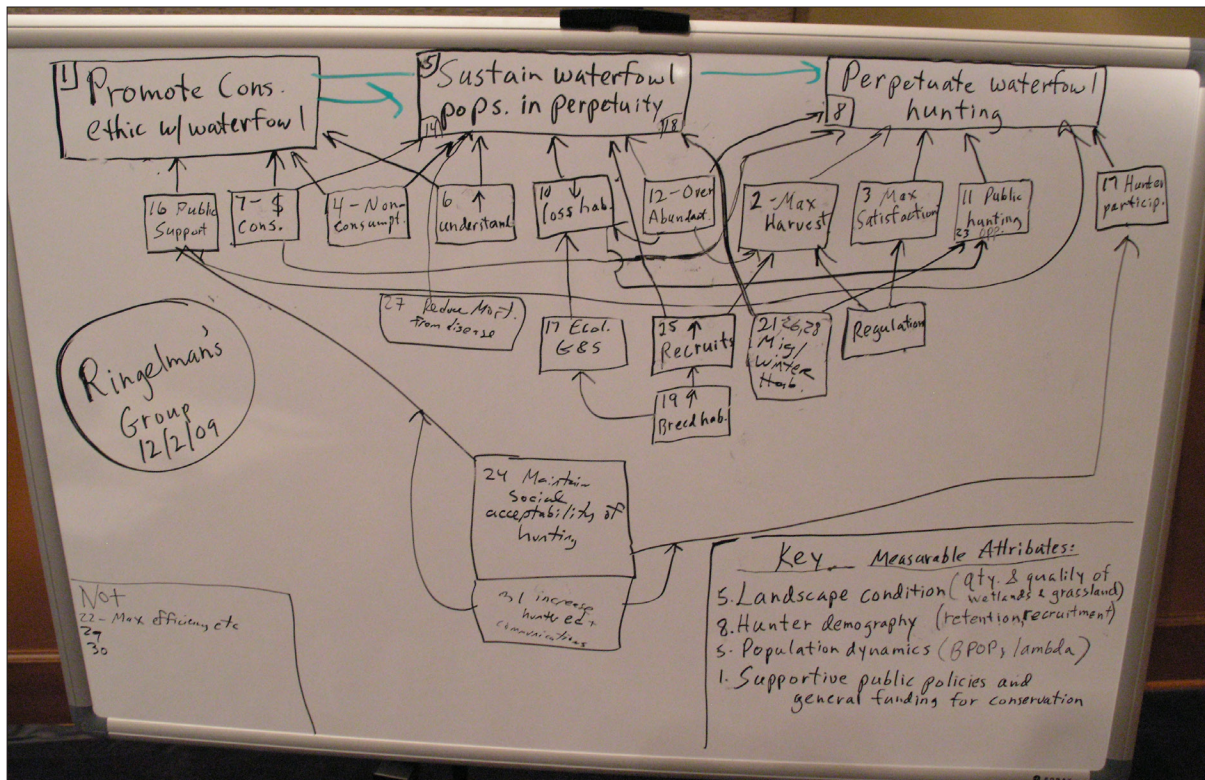 1
Promote Cons.
ethic w/ waterfowl
5
Sustain waterfowl
pops. in perpetuity
14
18
Perpetuate waterfowl
hunting
8
16 Public
Support
7-$
Cons.
4-Non-
consumpt.
6 ↑
understand.
10 ↓
loss hab.
12-Over
Abundant.
2-Max
Harvest
3 Max
Satisfaction
11 Public
hunting
23 opp.
17 Hunter
particip.
27 Reduce Mort.
from disease
17 Ecol.
G&S
25 ↑
Recruits
21 26,28
Mig/
Winter
Hab.
Regulation
19 ↑
Breed hab.
Ringelman's
Group
12/2/09
24 Maintain
social
acceptability of
hunting
31 increase
hunter ed +
communications
Not
22-Max efficiency etc
29
30
Key Measurable Attributes:
5. Landscape condition (qty. & quality of
wetlands & grassland)
8. Hunter demography (retention, recruitment)
5. Population dynamics (BPOP, lambda)
1. Supportive public policies and
general funding for conservation